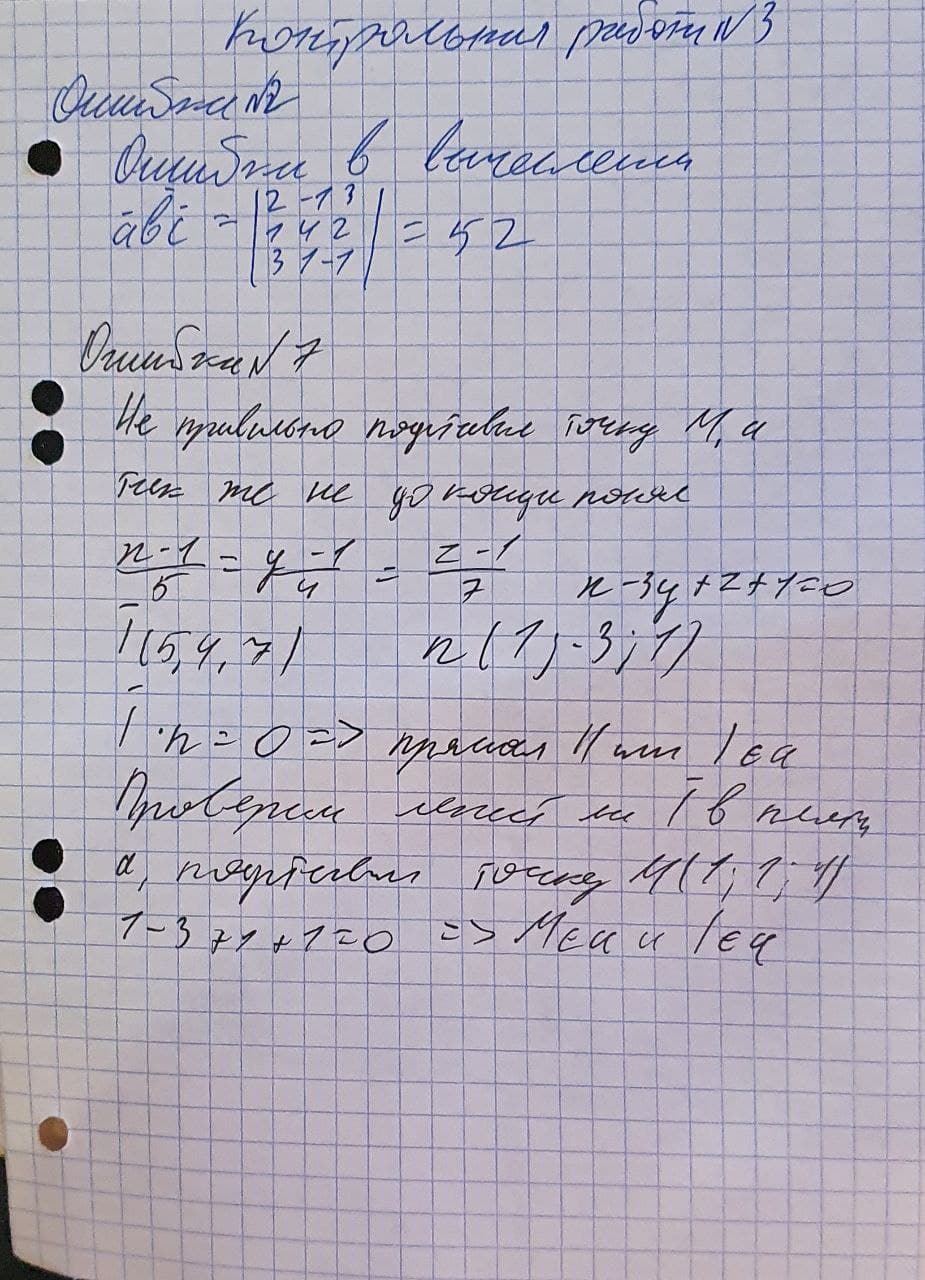 Контрольная работа №3
Ошибка №2
Ошибка в вычислениях
āb̄c̄ = |2 -1 3
1 4 2
3 1 -1| = -52
Ошибка №7
Не правильно подставил точку М, а
так же не до конца понял
x-1/5 = y-1/4 = z-1/7 x-3y+z+1=0
l̄(5,4,7) n(1;-3;1)
l̄·n=0 => прямая || или l∈α
Проверим лежит ли l̄ в плоск
α, подставим точку М(1;1;1)
1-3+1+1=0 => М∈α и l∈α